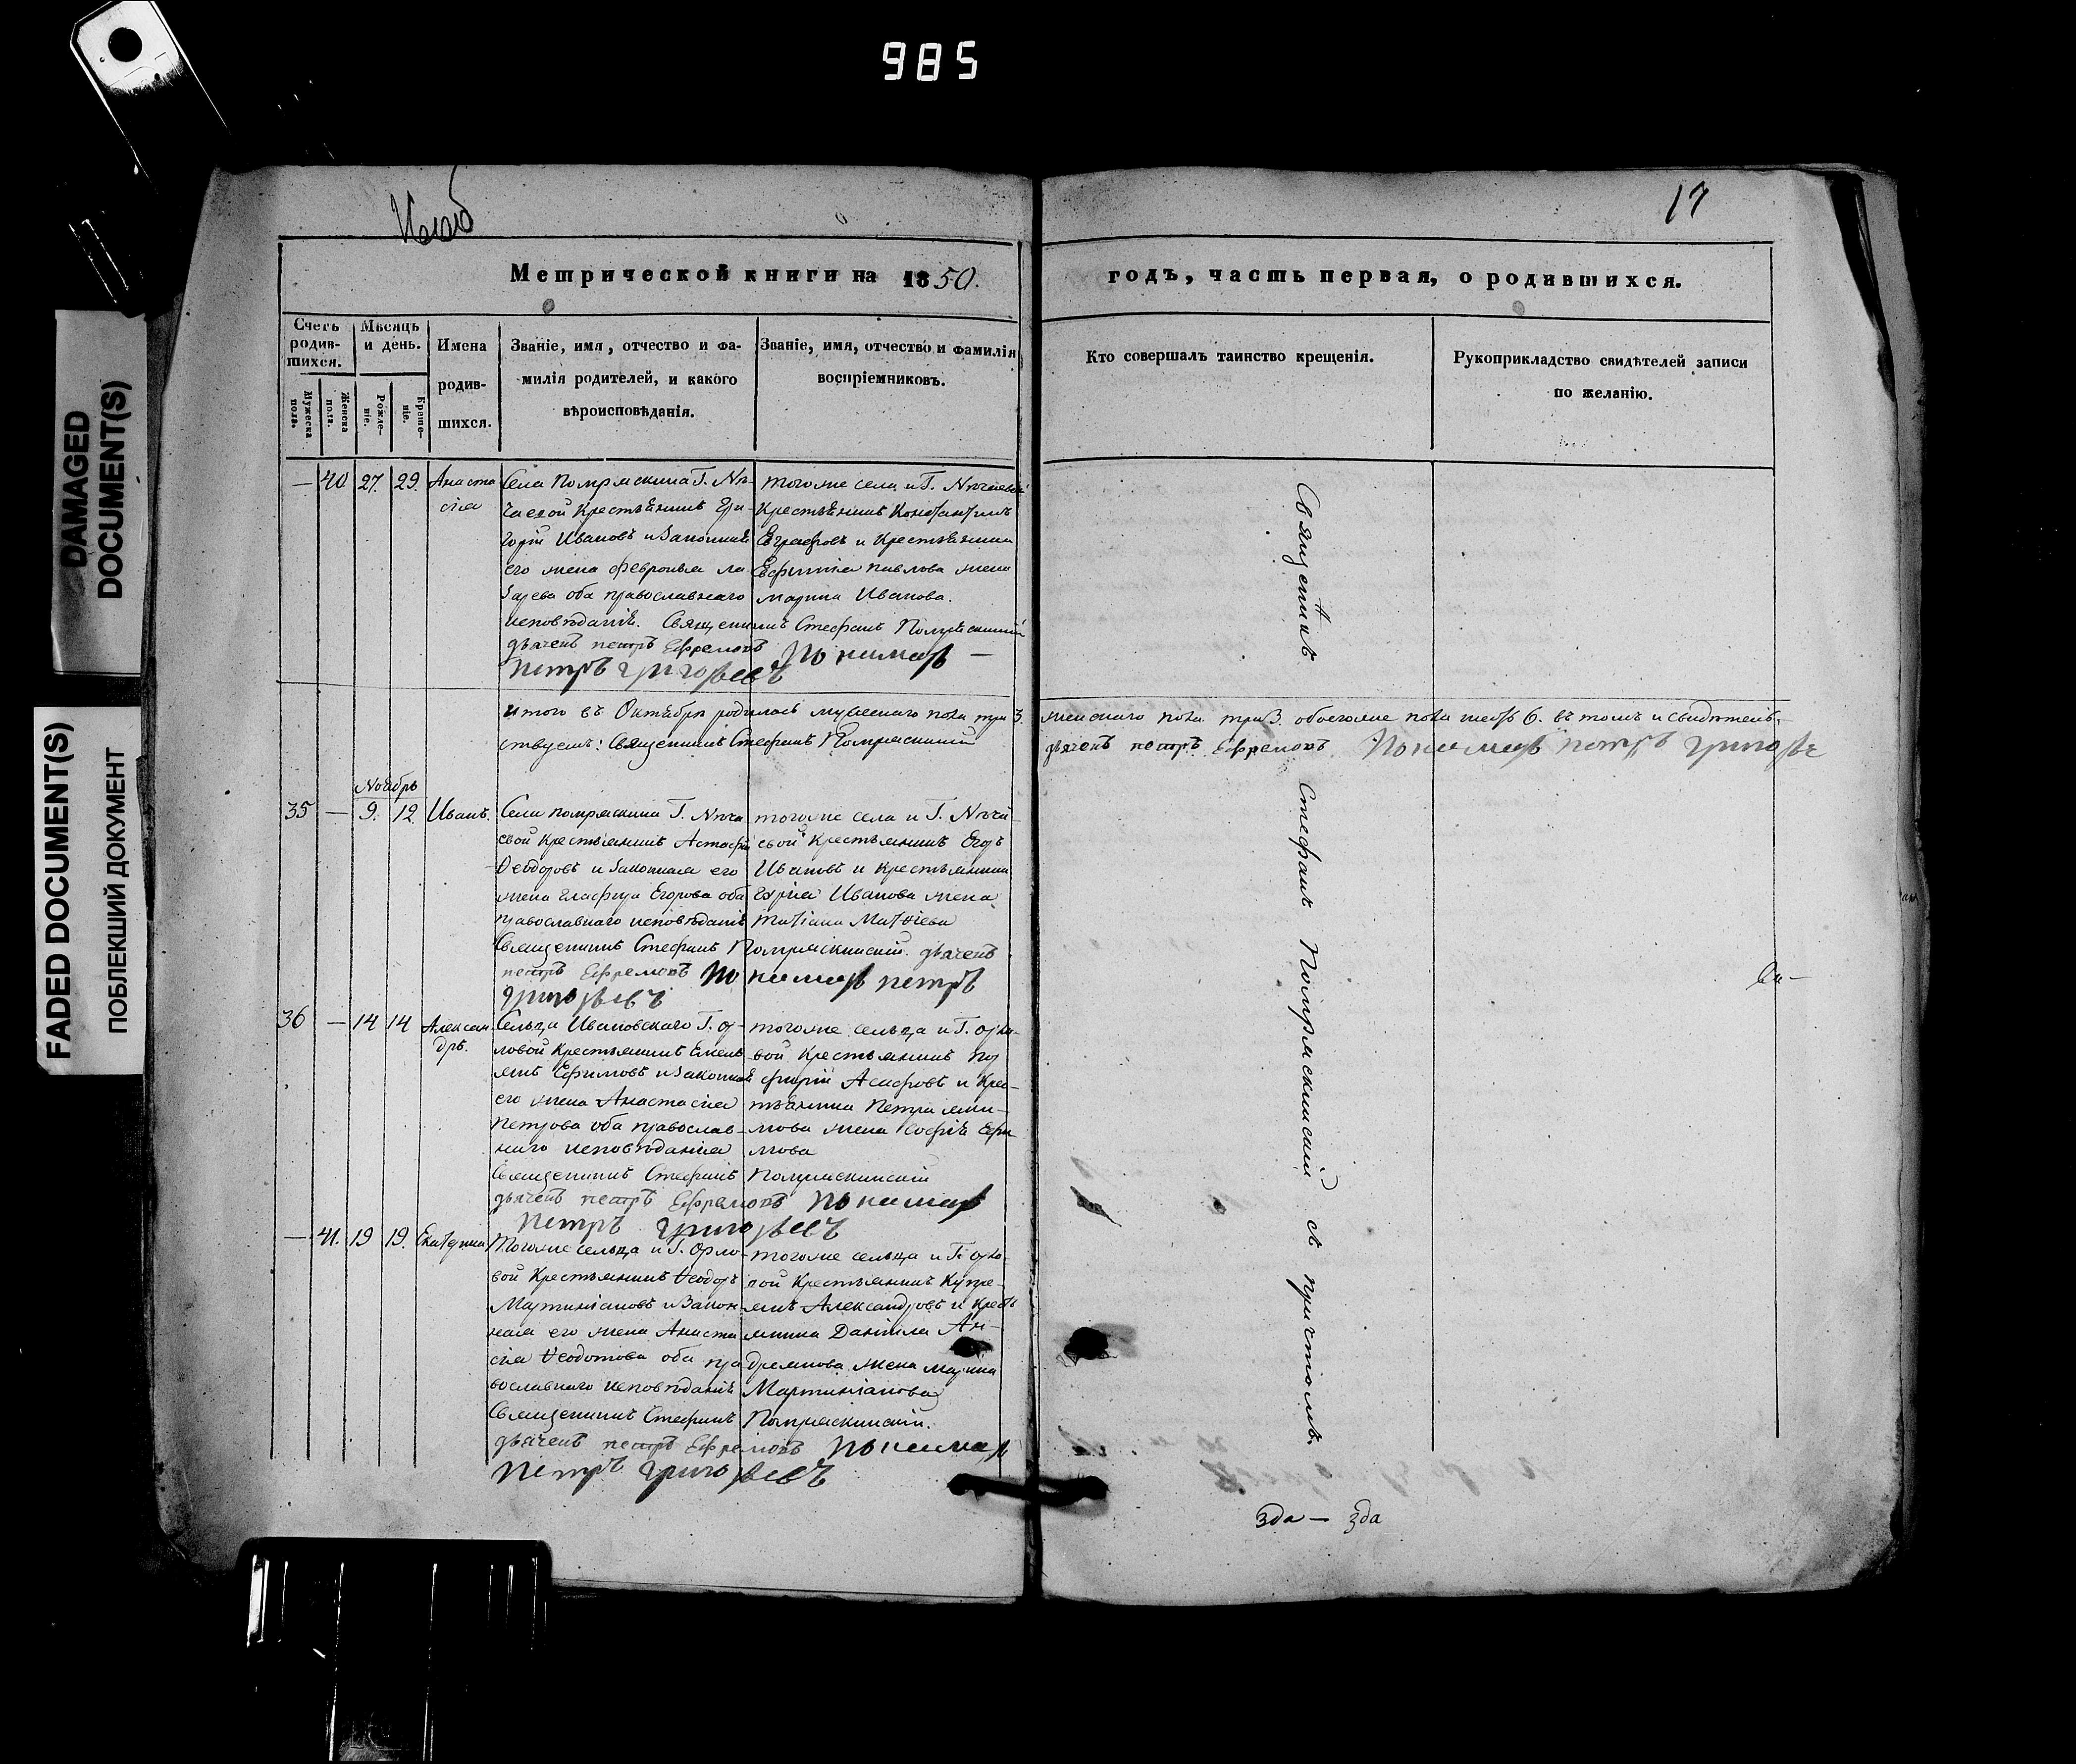 985
DAMAGED
DOCUMENT(S)
FADED DOCUMENT(S)
ПОБЛЕКШИЙ ДОКУМЕНТ
17
Метрической книги на 1850.
годъ, часть первая, о родившихся.
Счетъ родив-шихся.
Мужеска пола.
Женска пола.
Мѣсяцъ и день.
Рожде-ніе.
Креще-ніе.
Имена
родив-
шихся.
Званіе, имя, отчество и фа-
милія родителей, и какого
вѣроисповѣданія.
Званіе, имя, отчество и фамилія
воспріемниковъ.
Кто совершалъ таинство крещенія.
Рукоприкладство свидѣтелей записи
по желанію.
— 40 27. 29. Анаста
сіа
Села Помряскина Г. Не-
чаевой Крестьянинъ Гри-
горій Ивановъ и Законная
его жена Февронья ла
зарева оба православнаго
исповѣданія. Священникъ Стефанъ Помряскинскій
дьячекъ петръ Ефремовъ Пономарь —
петръ григорьевъ
тогоже села и Г. Нечаевой
Крестьянинъ Константинъ
Евграфовъ и Крестьянина
Евфимія павлова жена
марина Иванова.
Итого въ Октябрѣ родилось мужескаго пола три 3. женскаго пола три 3. обоегоже пола шесть 6. въ томъ и свидѣтель-
ствуемъ: Священникъ Стефанъ Помряскинскій дьячекъ петръ Ефремовъ Пономарь петръ григорье
Ноябрь
35 — 9. 12. Иванъ.
Села помряскина Г. Неча
евой Крестьянинъ Астафій
Ѳеодоровъ и Законная его
жена гласфира Егорова оба
православнаго исповѣданія
Священникъ Стефанъ Помряскинскій. дьячекъ
петръ Ефремовъ Пономарь петръ
григорьевъ
тогоже села и Г. Неча
евой Крестьянинъ Егоръ
Ивановъ и Крестьянина
Гурія Иванова жена
татіана Матѳіева
36 — 14 14 Алексан
дръ.
Сельца Ивановскаго Г. ор-
ловой Крестьянинъ Емель
янъ Ефимовъ и Законная
его жена Анастасіа
петрова оба православ-
наго исповѣданіа
Священникъ Стефанъ Помряскинскій
дьячекъ петръ Ефремовъ Пономарь
петръ григорьевъ
тогоже сельца и Г. орло-
вой Крестьянинъ Пор
фирій Асафовъ и Крес-
тьянина Петра
жена софія Ефи
мова
— 41. 19 19. Екатерина
Тогоже сельца и Г. Орло-
вой Крестьянинъ Ѳеодоръ
Мартиніановъ и Закон-
ная его жена Анаста
сіа Ѳеодотова оба пра
вославнаго исповѣданія
Священникъ Стефанъ Помряскинскій.
дьячекъ петръ Ефремовъ Пономарь
петръ григорьевъ
тогоже сельца и Г. орло-
вой Крестьянинъ Купре-
янъ Александровъ и Кресть
янина Даніила Ан-
дреянова жена марина
Мартиніанова
Священникъ Стефанъ Помряскинскій съ причтомъ.
За —
Зда — Зда